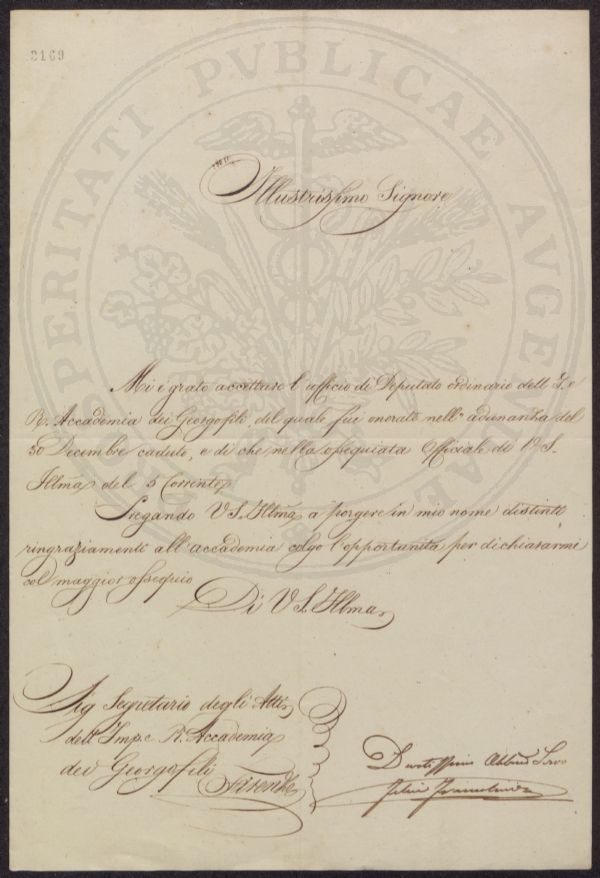 3169
PROSPERITATI PVBLICAE AVGENDAE
Illustrissimo Signore
Mi è grato accettare l'ufficio di Deputato ordinario dell' I. e
R. Accademia dei Georgofili del quale fui onorato nell' adunanza del
30 Decembre caduto, e di che nella ossequiata Officiale di V. S.
Illma del 5 Corrente
Pregando V S. Illma a porgere in mio nome distinti
ringraziamenti all'accademia colgo l'opportunità per dichiararmi
col maggior ossequio
Di V S. Illma
Sig Segretario degli Atti
dell' Imp. e R. Accademia
dei Georgofili
Firenze
Devotissimo Obbmo Servo